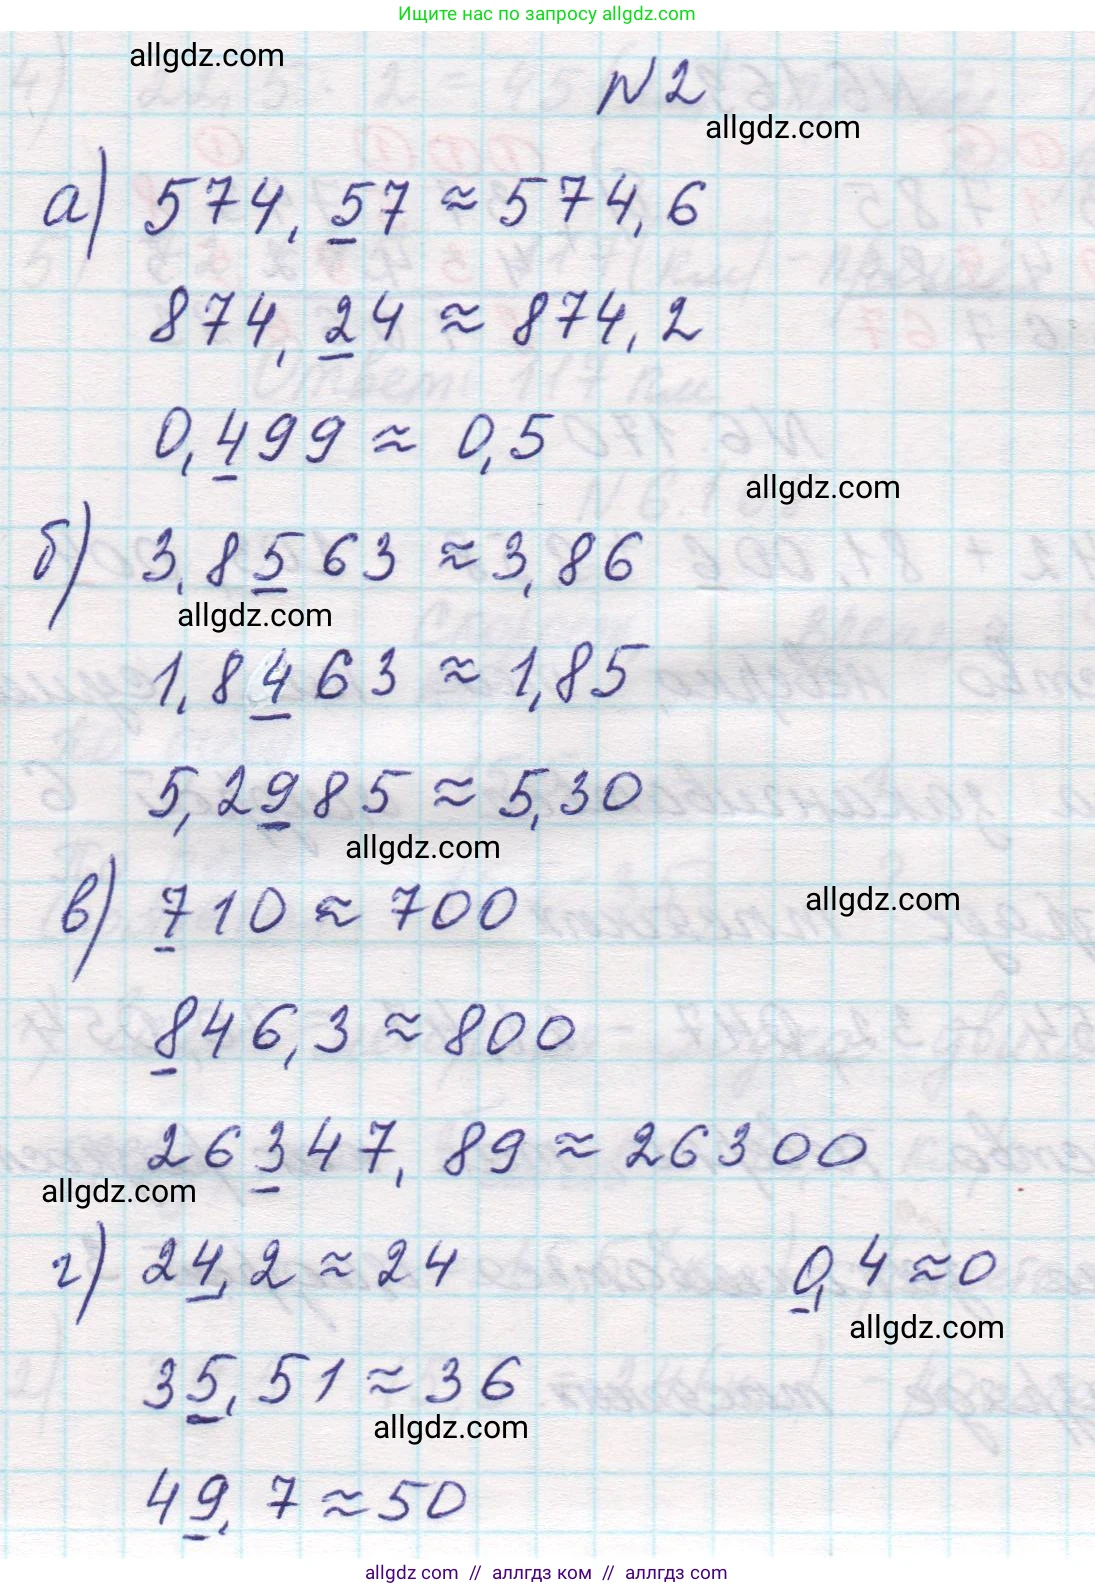 Ищите нас по запросу allgdz.com
allgdz.com
N 2
allgdz.com
а) 574,57 ≈ 574,6
874,24 ≈ 874,2
0,499 ≈ 0,5
allgdz.com
б) 3,8563 ≈ 3,86
allgdz.com
1,8463 ≈ 1,85
5,2985 ≈ 5,30
allgdz.com
в) 710 ≈ 700
allgdz.com
846,3 ≈ 800
26347,89 ≈ 26300
allgdz.com
г) 24,2 ≈ 24 0,4 ≈ 0
allgdz.com
35,51 ≈ 36
allgdz.com
49,7 ≈ 50
allgdz.com // аллгдз ком // аллгдз.com